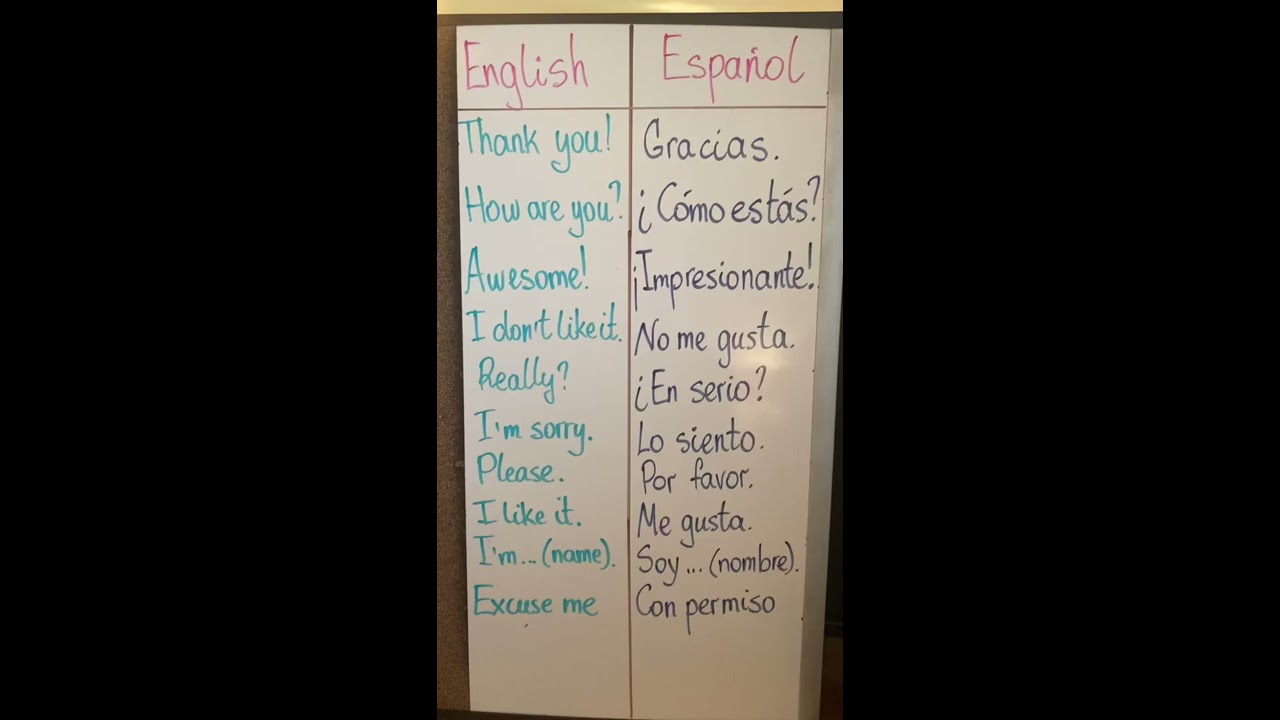 English Español
Thank you! Gracias.
How are you? ¿Cómo estás?
Awesome! ¡Impresionante!
I don't like it. No me gusta.
Really? ¿En serio?
I'm sorry. Lo siento.
Please. Por favor.
I like it. Me gusta.
I'm... (name). Soy... (nombre).
Excuse me Con permiso